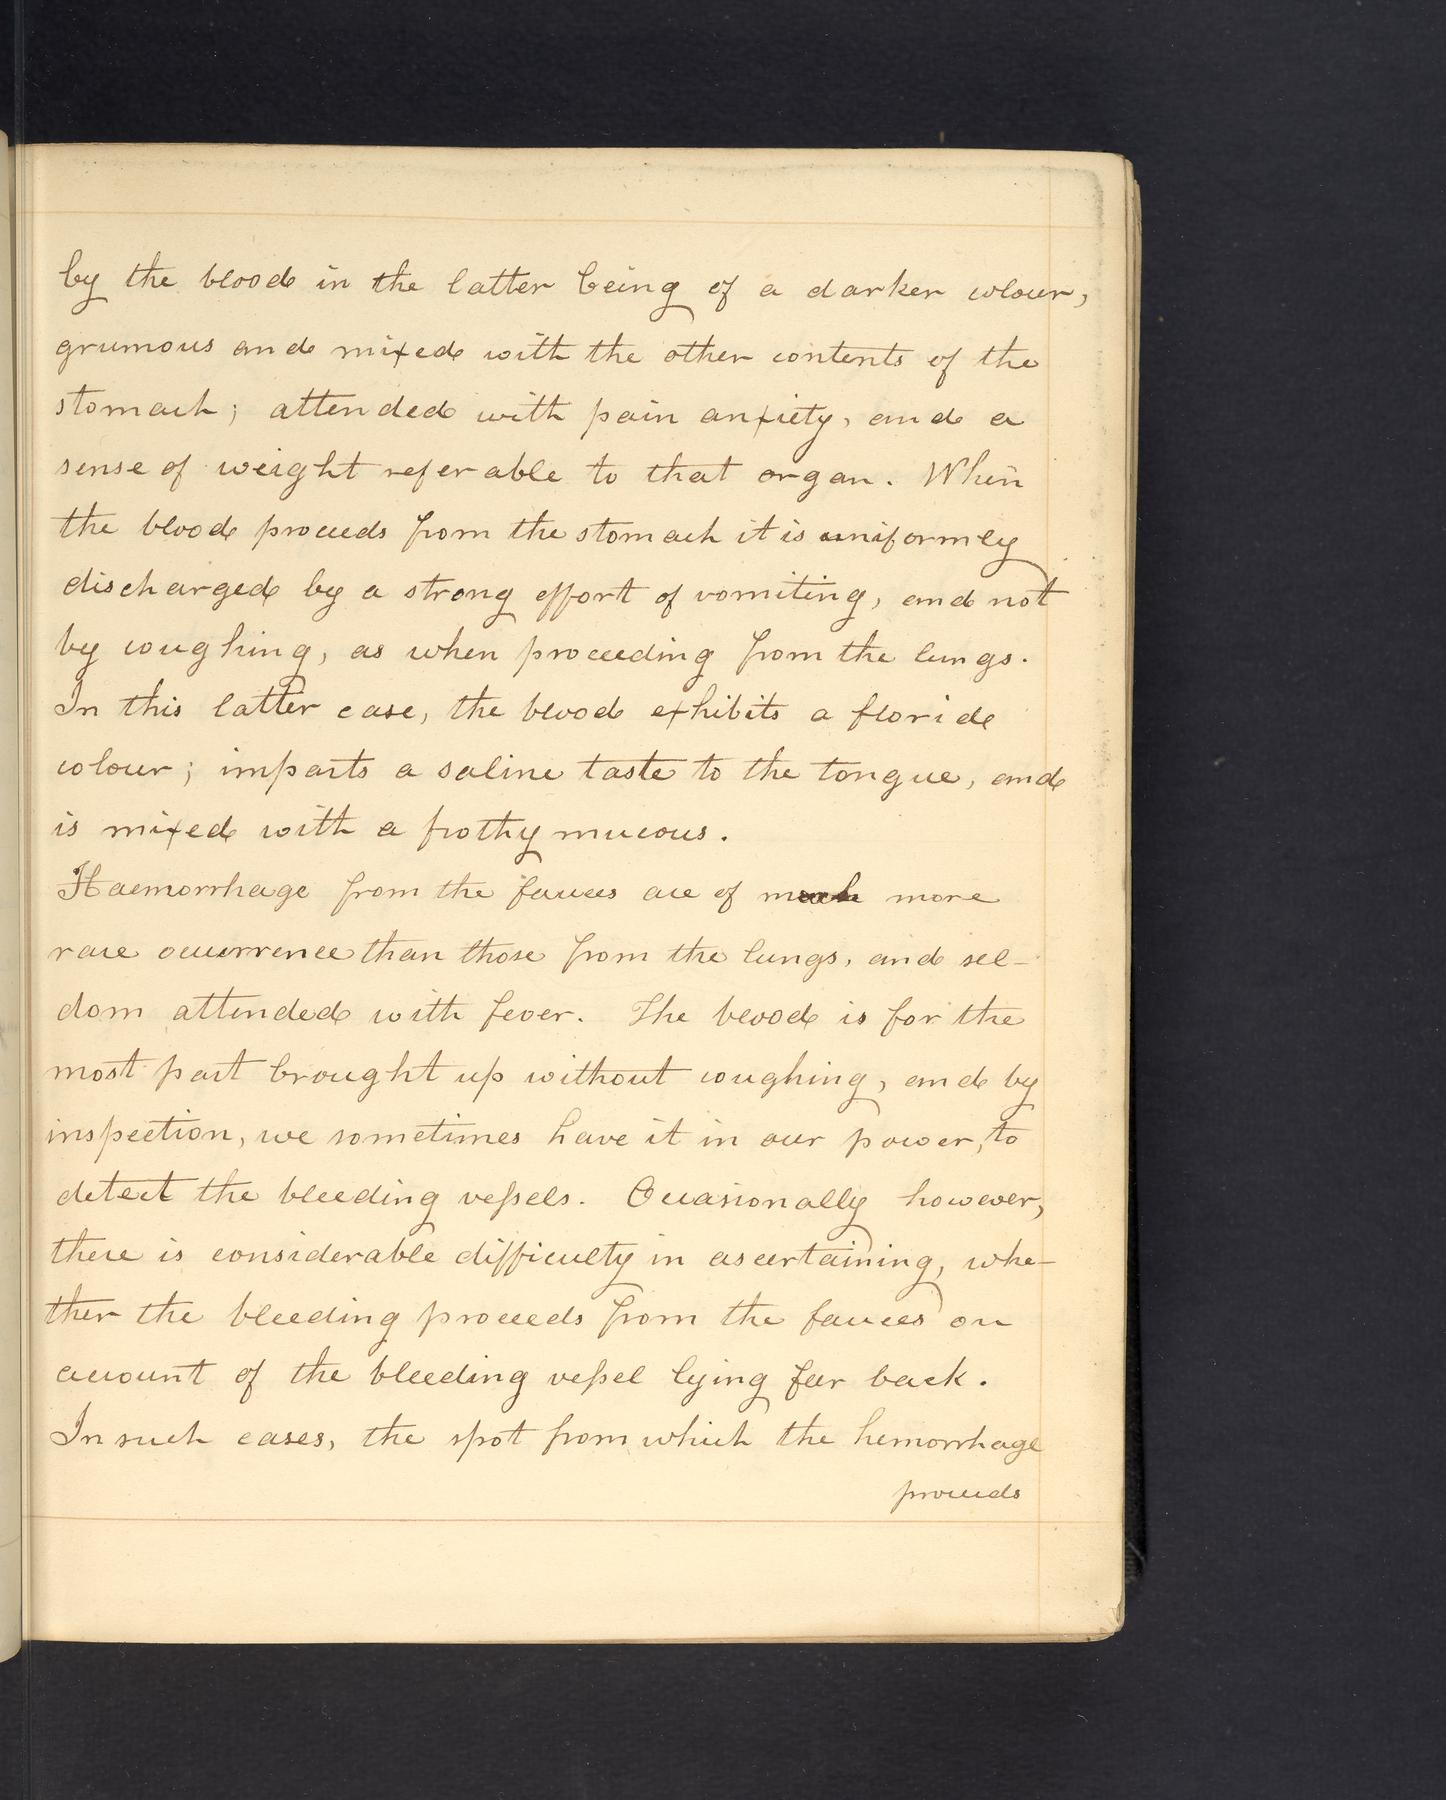 by the blood in the latter being of a darker colour,
grumous and mixed with the other contents of the
stomach; attended with pain anxiety, and a
sense of weight referable to that organ. When
the blood proceeds from the stomach it is uniformly
discharged by a strong effort of vomiting, and not
by coughing, as when proceeding from the lungs.
In this latter case, the blood exhibits a florid
colour; imparts a saline taste to the tongue, and
is mixed with a frothy mucous.
Haemorrhage from the fauces are of much more
rare occurrence than those from the lungs, and sel-
dom attended with fever. The blood is for the
most part brought up without coughing, and by
inspection, we sometimes have it in our power, to
detect the bleeding vessels. Occasionally however,
there is considerable difficulty in ascertaining, whe-
ther the bleeding proceeds from the fauces on
account of the bleeding vessel lying far back.
In such cases, the spot from which the hemorrhage
proceeds